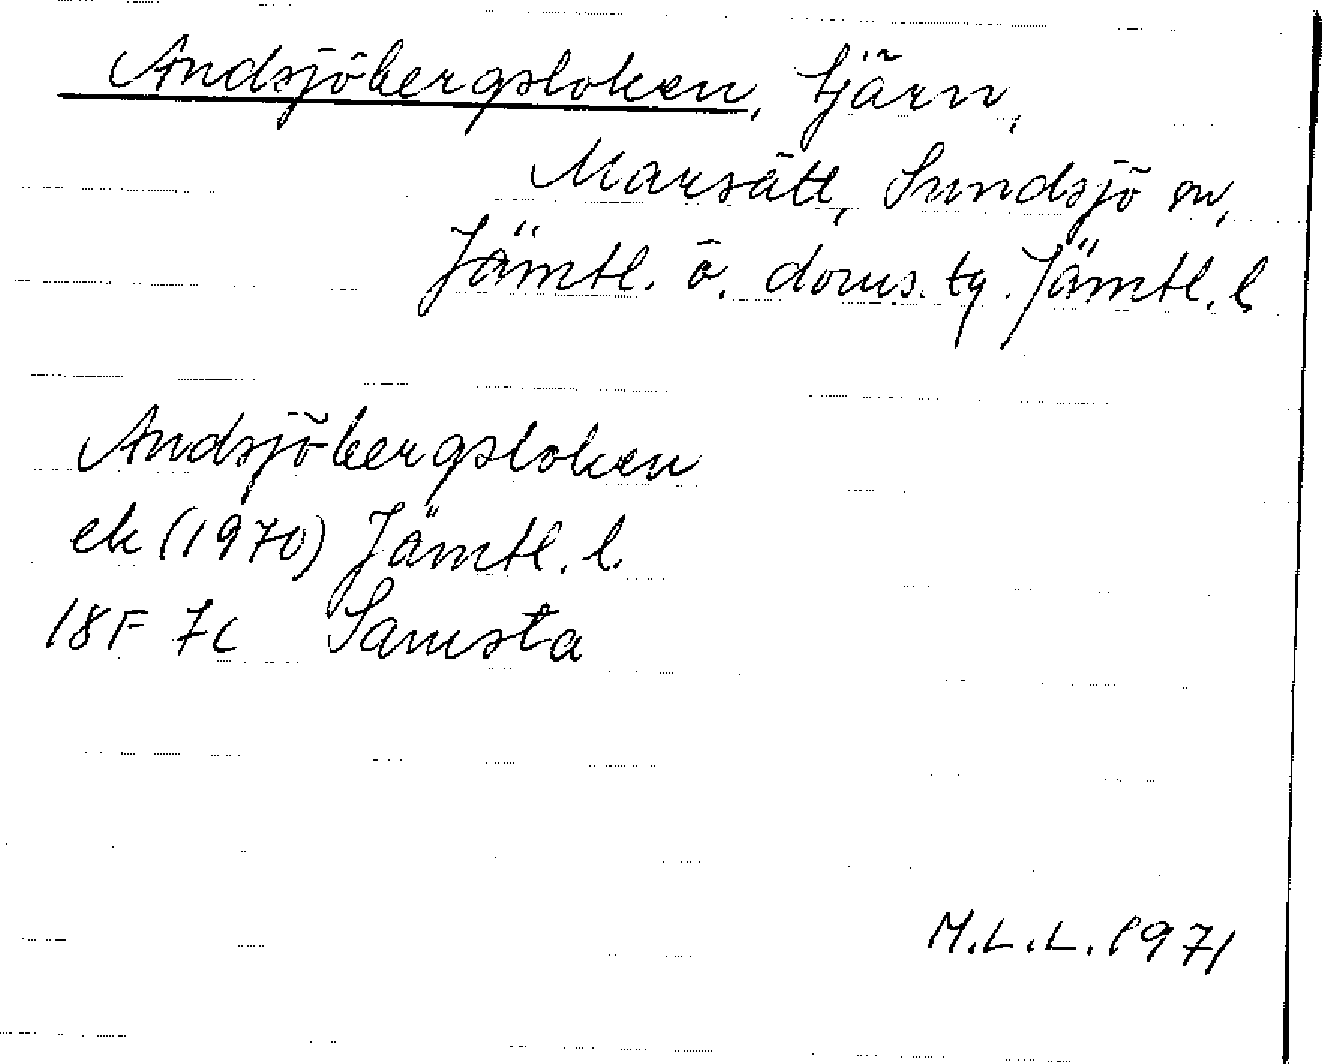 Andsjöbergsloken, tjärn,
Marsätt, Sundsjö sn,
Jämtl. ö. doms. tg. Jämtl. l
Andsjöbergsloken
ek (1970) Jämtl. l.
18F 7c Samsta
M.L.L. 1971